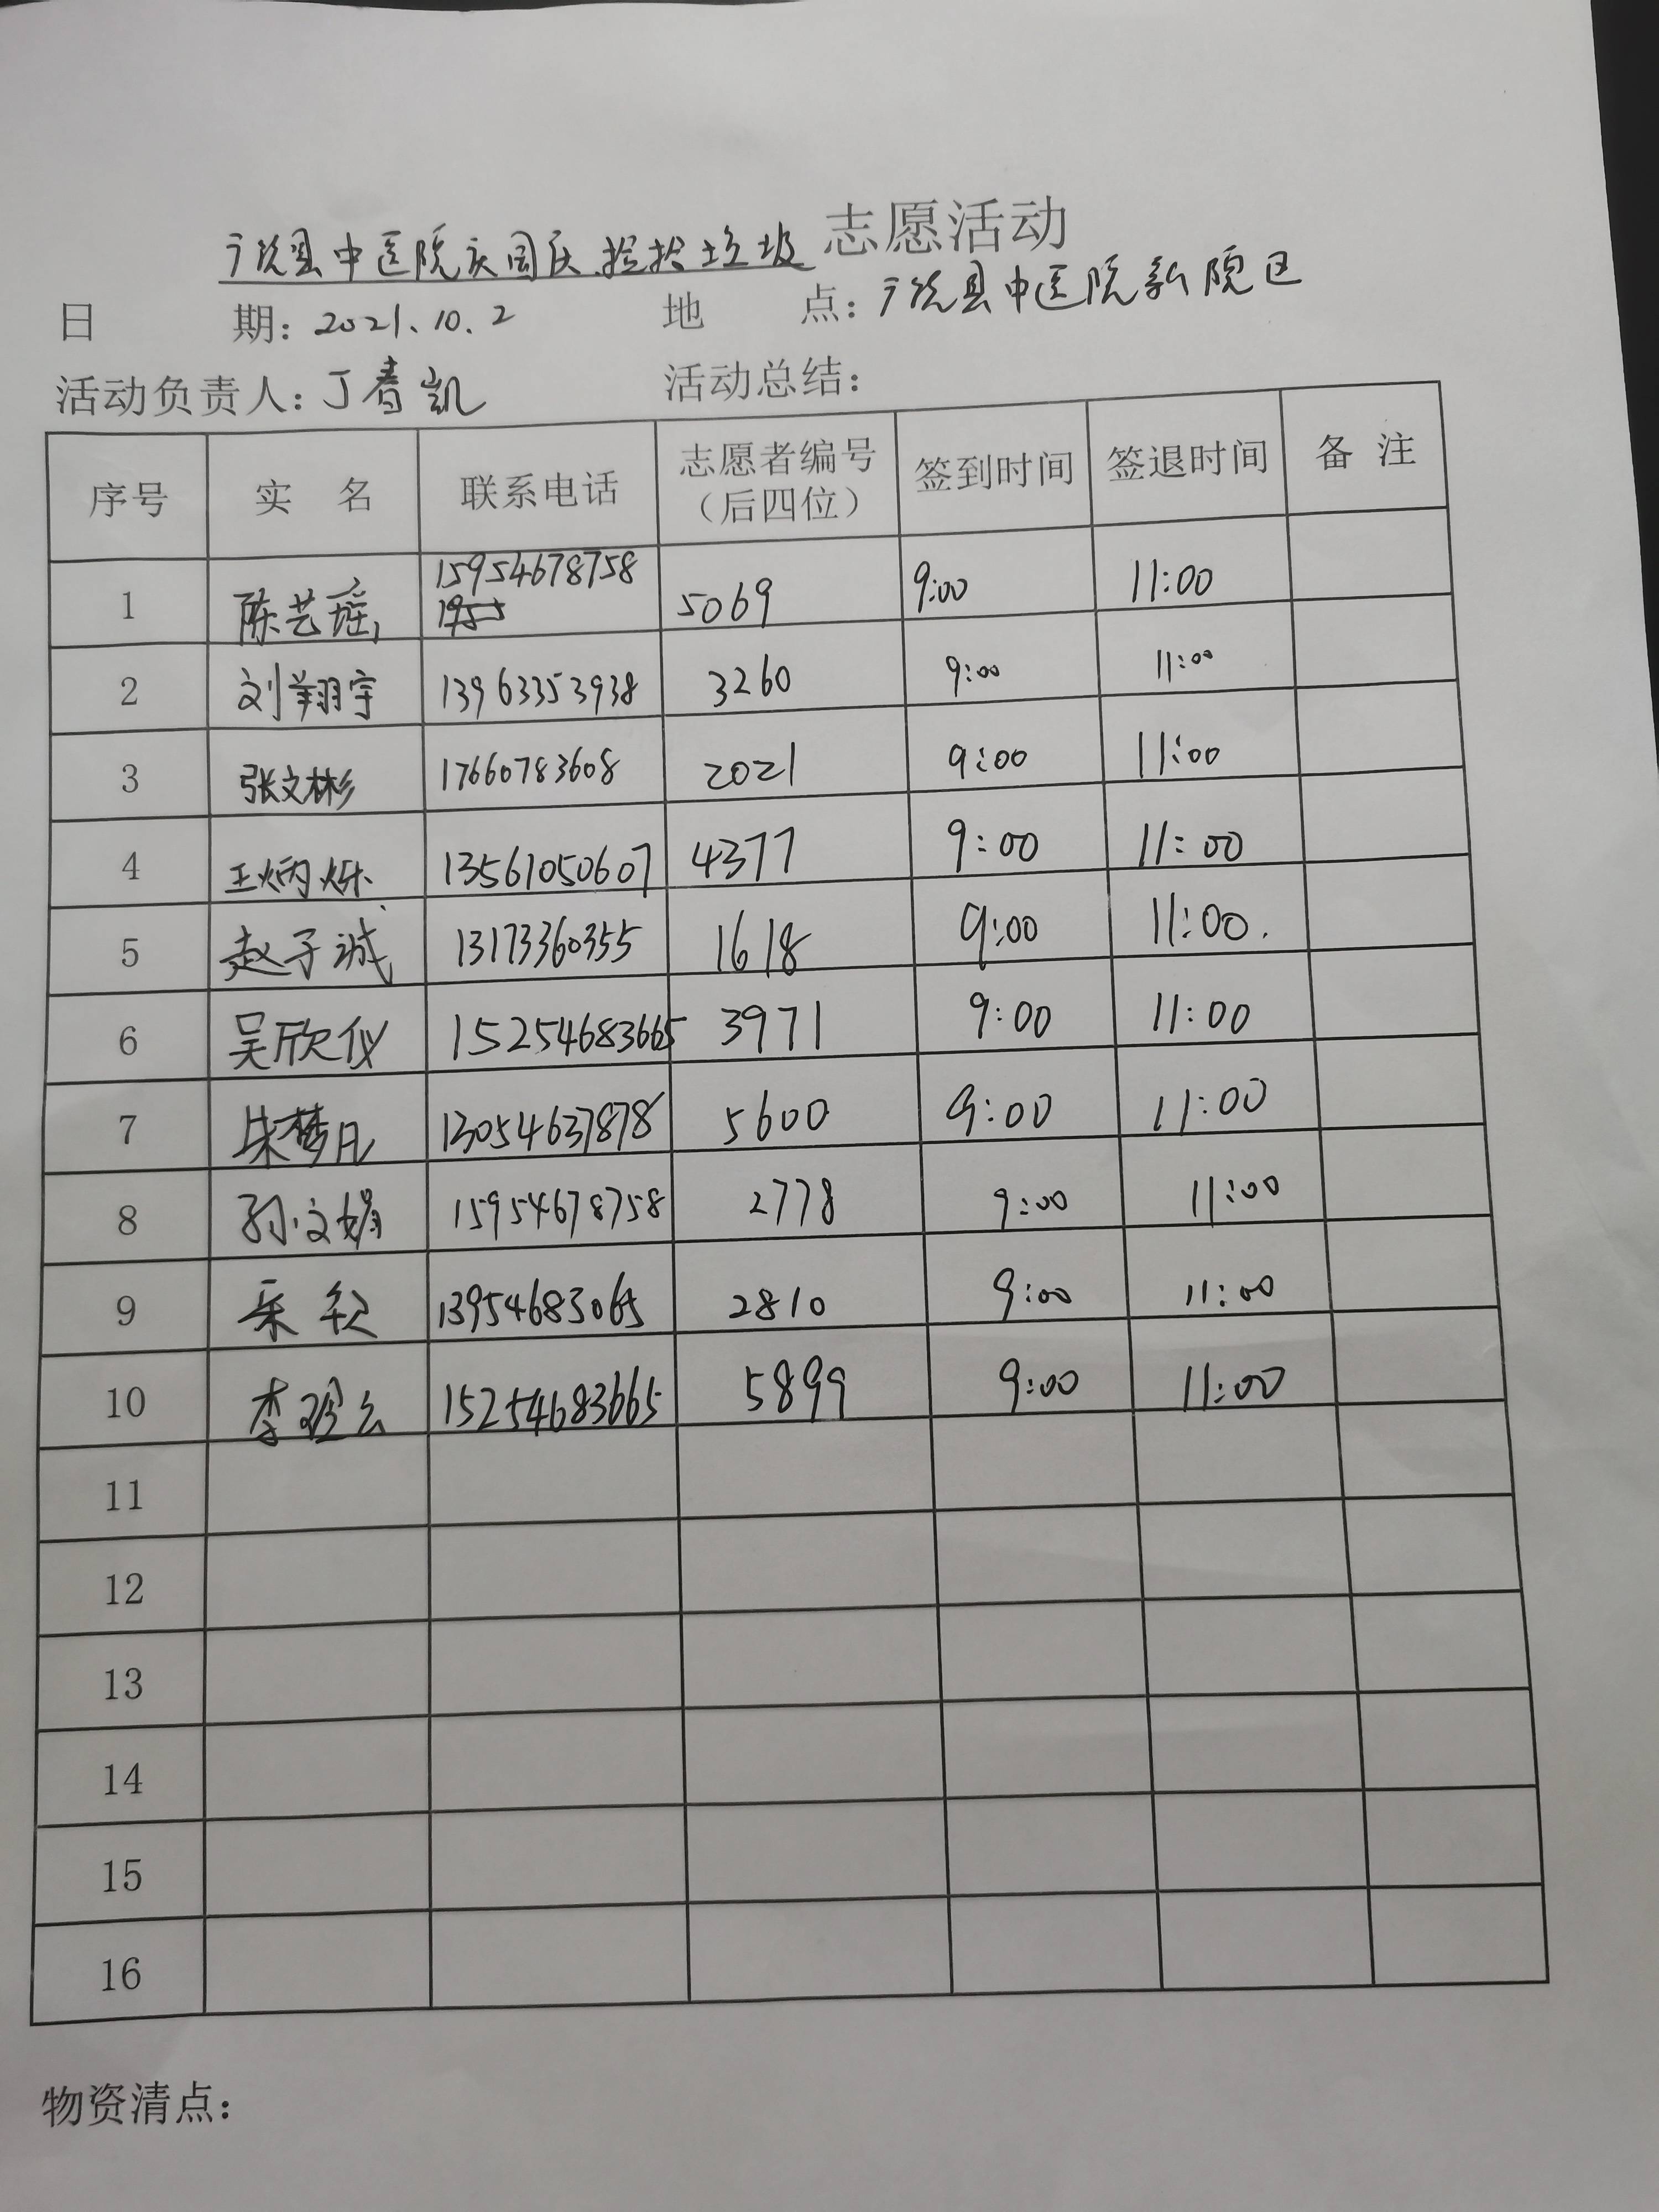 广饶县中医院庆国庆捡拾垃圾 志愿活动
日 期：2021.10.2 地 点：广饶县中医院新院区
活动负责人：丁春凯 活动总结：
序号 实 名 联系电话 志愿者编号（后四位） 签到时间 签退时间 备 注
1 陈艺瑶 15954678758 5069 9:00 11:00
2 刘翔宇 13963353938 3260 9:00 11:00
3 张文彬 17660783608 2021 9:00 11:00
4 王炳烁 13561050607 4377 9:00 11:00
5 赵子诚 13173360355 1618 9:00 11:00.
6 吴欣仪 15254683665 3971 9:00 11:00
7 朱梦凡 13054637878 5600 9:00 11:00
8 孙文娟 15954678758 2778 9:00 11:00
9 13954683065 2810 9:00 11:00
10 李 15254683665 5899 9:00 11:00
11
12
13
14
15
16
物资清点：